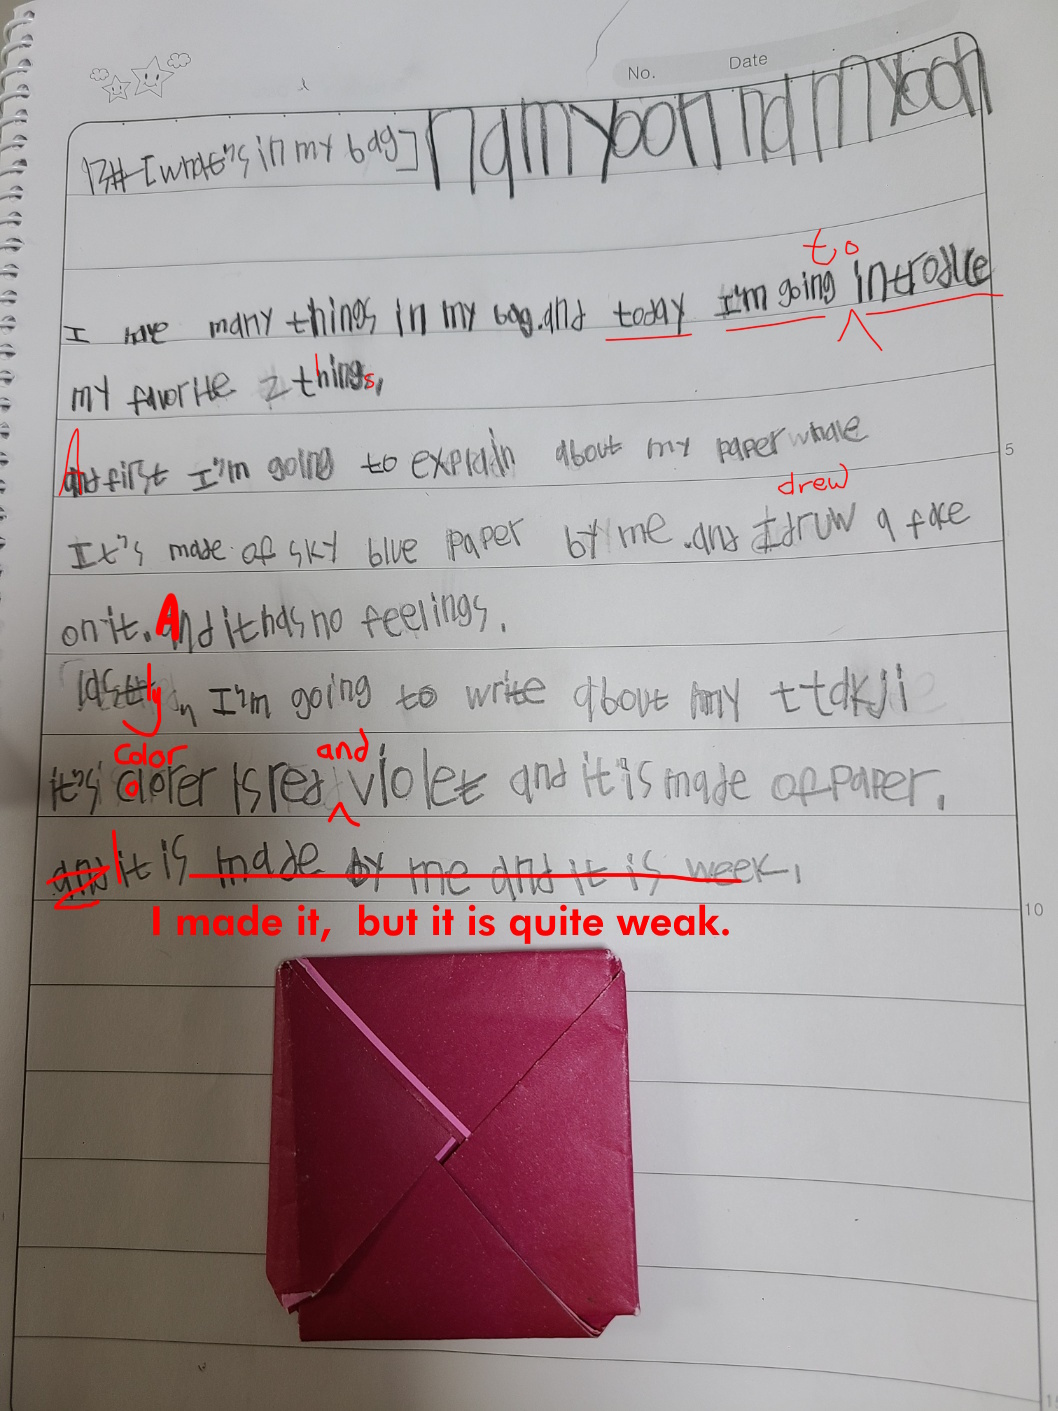 No. Date
13# [what's in my bag] namyoon namyoon
to
I have many things in my bag.and today I'm going introduce
my favorite 2 things,
And first I'm going to explain about my paper whale
drew
It's made of sky blue paper by me .and I druw a face
on it. And it has no feelings.
lastly, I'm going to write about my ttakji
color and
it's clorer is red violet and it is made of paper.
and it is made by me and it is week.
I made it, but it is quite weak.
5
10